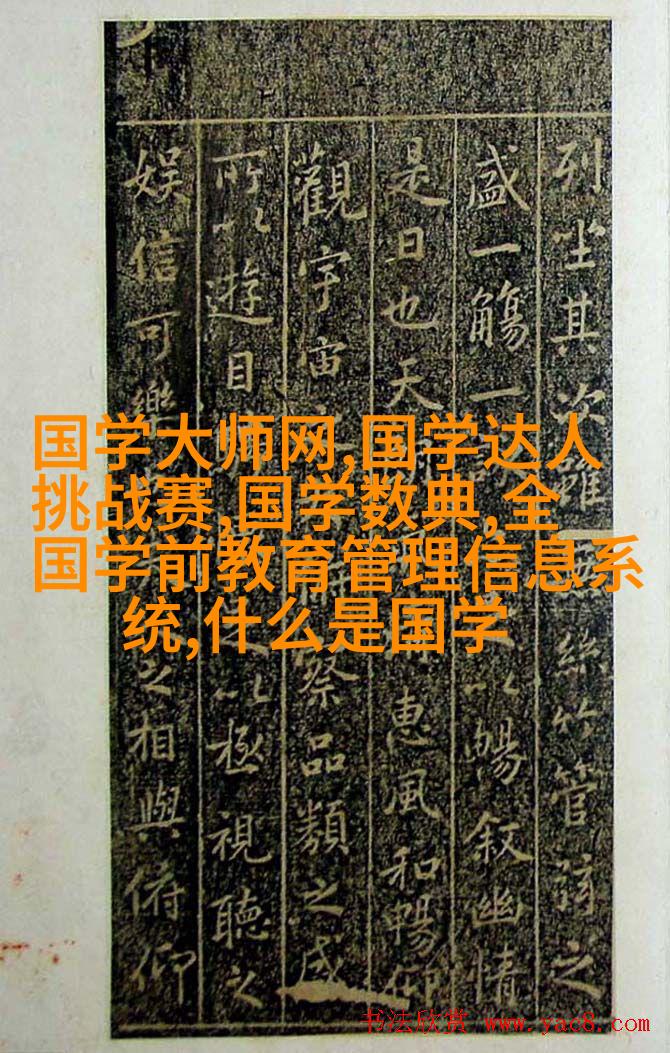 国学大师网,国学达人
挑战赛,国学数典,全
国学前教育管理信息系
统,什么是国学
列坐其次雖絲竹管弦之
盛一觴一以暢叙幽情
是日也天惠風和暢仰
觀宇宙察品類之
所以遊目以極視聽之
娱信可樂之相與俯仰
书法欣赏 www.yac8.com